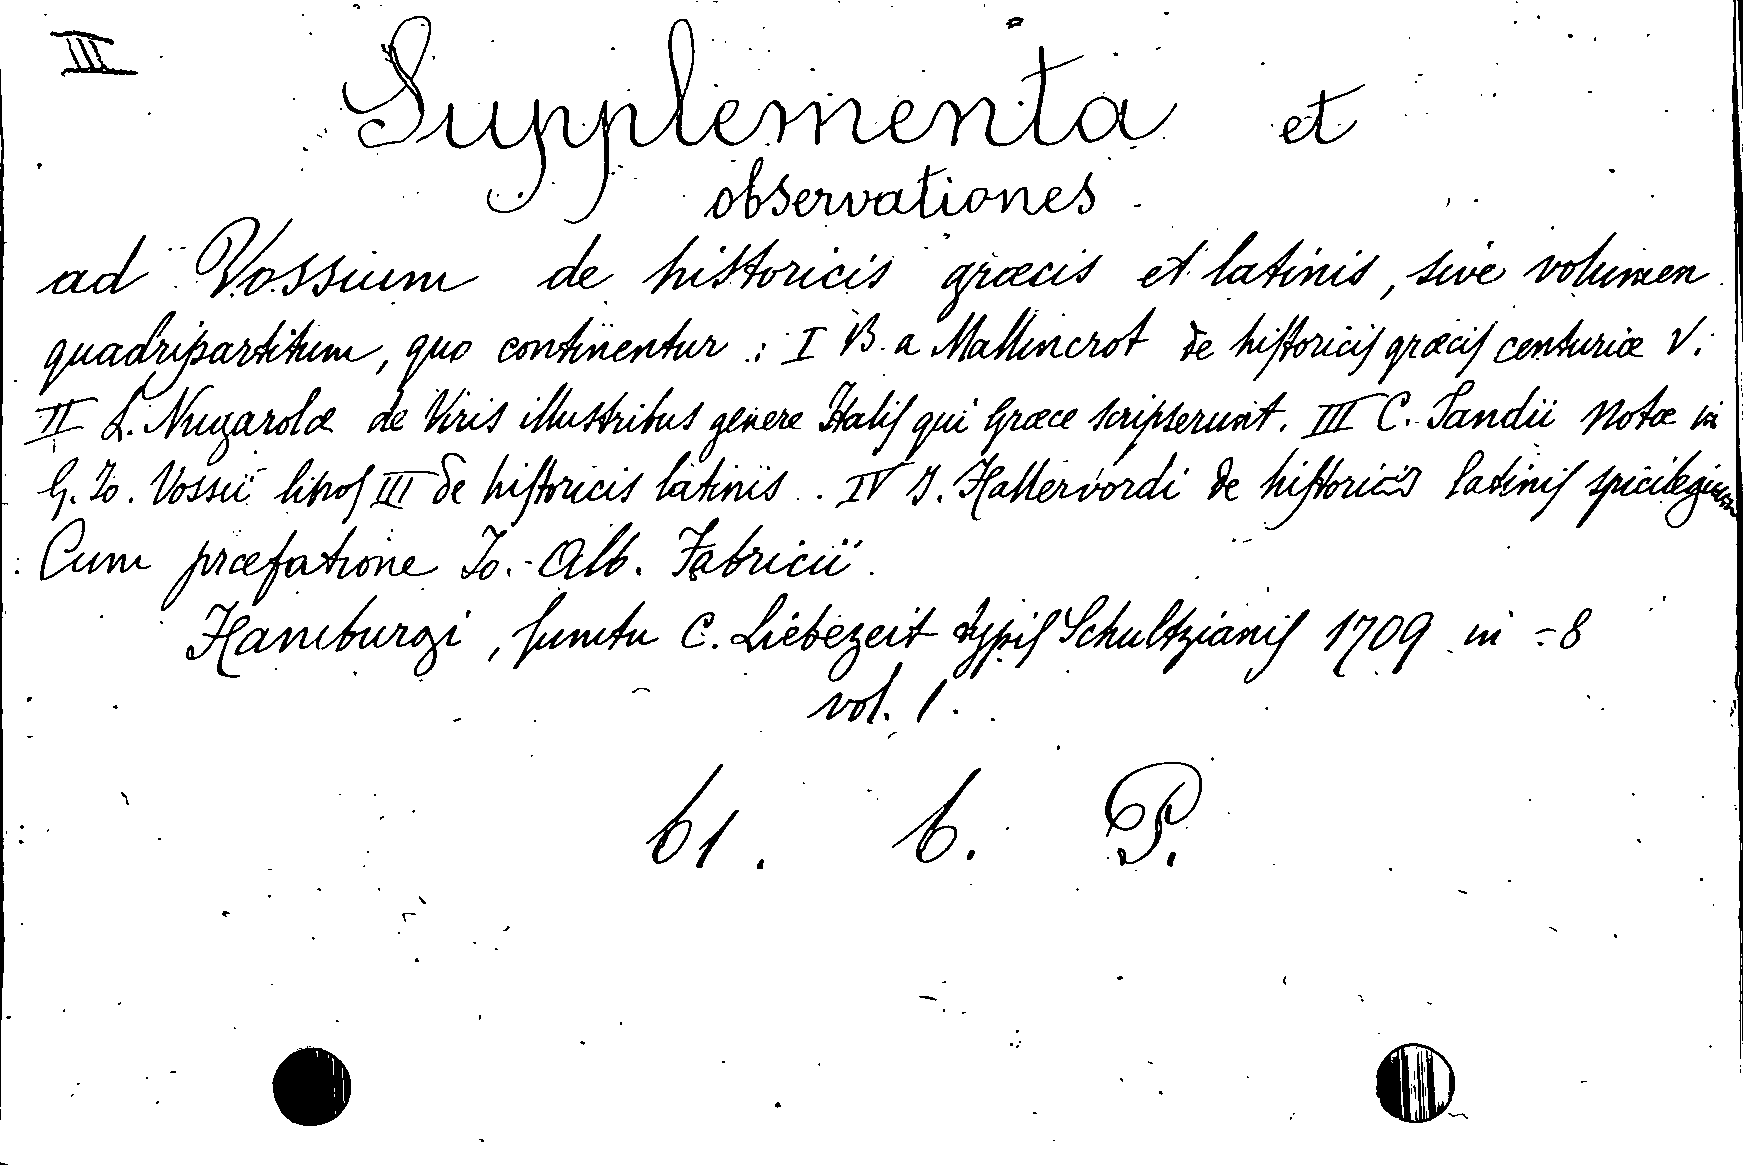 III
Supplementa et
observationes
ad Vossium de historicis græcis et latinis, sive volumen
quadripartitum, quo continentur : I B. a Mallincrot de historicis græcis centuriæ V.
II L. Nugarolæ de Viris illustribus genere Italis qui Græce scripserunt. III C. Sandii Notæ in
G. Jo. Vossii libros III de historicis latinis. IV J. Hallervordi de historicis latinis spicilegium
Cum præfatione Jo. Alb. Fabricii.
Hamburgi, sumtu C. Liebezeit typis Schultzianis 1709 in -8
vol. 1.
61. 6. P.